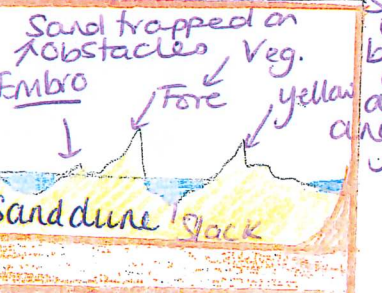 Sand trapped on
↗Obstacles
Veg.
Embro
Fore
yellow
Sand dune
Slack